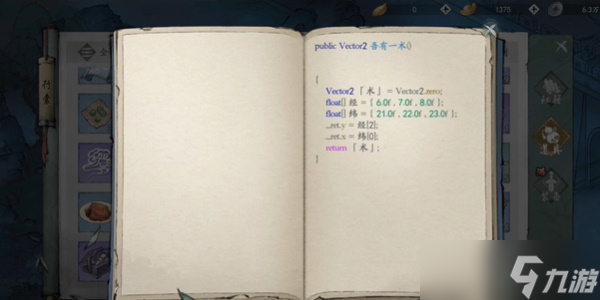 1375
6.33
行囊
全
public Vector2 吾有一米()
{
Vector2 「米」 = Vector2.zero;
float[] 经 = { 6.0f , 7.0f , 8.0f };
float[] 纬 = { 21.0f , 22.0f , 23.0f };
_ret.y = 经[2];
_ret.x = 纬[0];
return 「米」;
}
九游